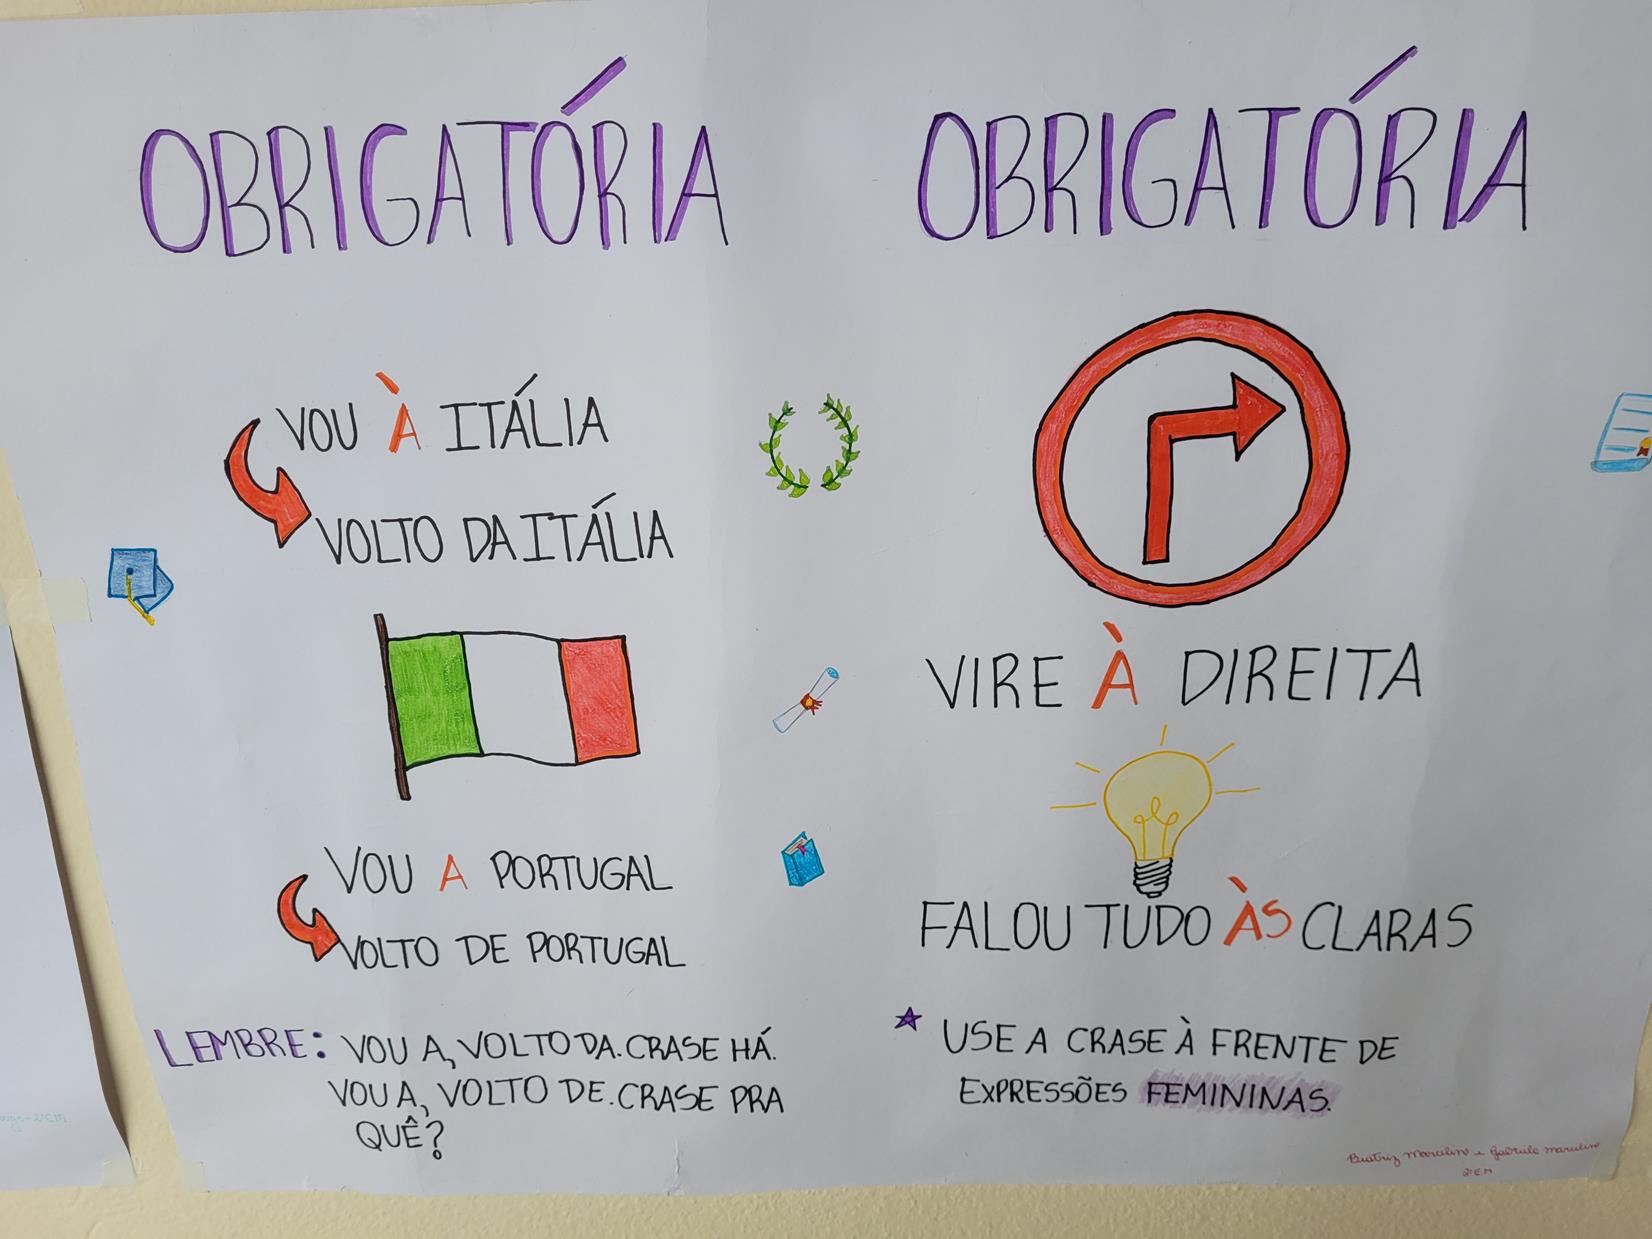 OBRIGATÓRIA
VOU À ITÁLIA
VOLTO DA ITÁLIA
VOU A PORTUGAL
VOLTO DE PORTUGAL
LEMBRE: VOU A, VOLTO DA. CRASE HÁ.
VOU A, VOLTO DE. CRASE PRA
QUÊ?
OBRIGATÓRIA
VIRE À DIREITA
FALOU TUDO ÀS CLARAS
USE A CRASE À FRENTE DE
EXPRESSÕES FEMININAS.
Beatriz Marculino e Gabriele Marculino
2º E.M